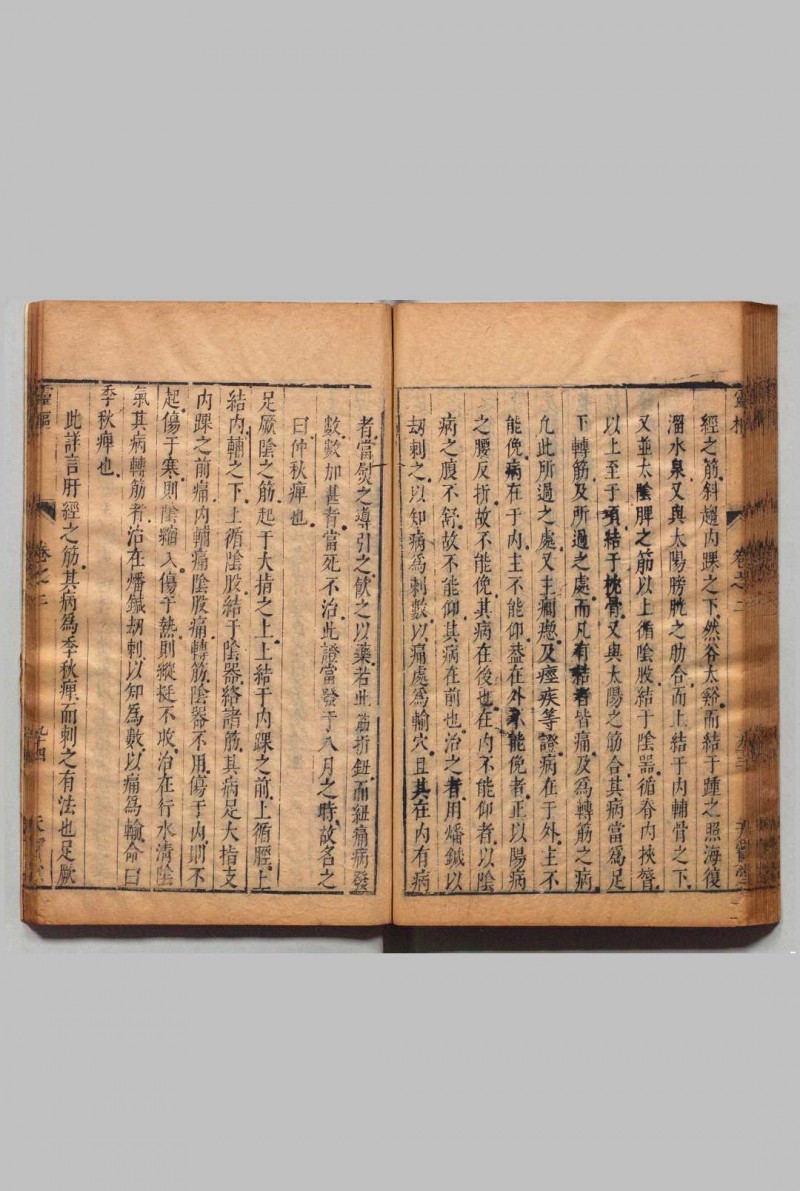 經之筋斜趨內踝之下然谷太谿而結于踵之照海復
溜水泉又與太陽膀胱之肋合而上結于内輔骨之下
又並太陰脾之筋以上循陰股結于陰器循脊内挾膂
以上至于項結于枕骨又與太陽之筋合其病當爲足
下轉筋及所過之處而凡有結者皆痛及爲轉筋之病
凡此所過之處又主癇瘛及痙疾等證病在于外主不
能俛病在于内主不能仰益在外不能俛者正以陽病
之腰反折故不能俛其病在後也在内不能仰者以陰
病之腹不舒故不能仰其病在前也治之者用燔鍼以
刼刺之以知病爲刺數以痛處爲輸穴且其在内有病
者當熨之導引之飲之以藥若此筋折鈕而紐痛病發
數數加甚者當死不治此證當發于八月之時故名之
曰仲秋痺也
足厥陰之筋起于大指之上上結于内踝之前上循脛上
結内輔之下上循陰股結于陰器絡諸筋其病足大指支
内踝之前痛内輔痛陰股痛轉筋陰器不用傷于内則不
起傷于寒則陰縮入傷于熱則縱挺不收治在行水清陰
氣其病轉筋者治在燔鍼刼刺以知爲數以痛爲輸命曰
季秋痺也
此詳言肝經之筋其病爲季秋痺而刺之有法也足厥
靈樞
卷之二
九十四
天寶堂